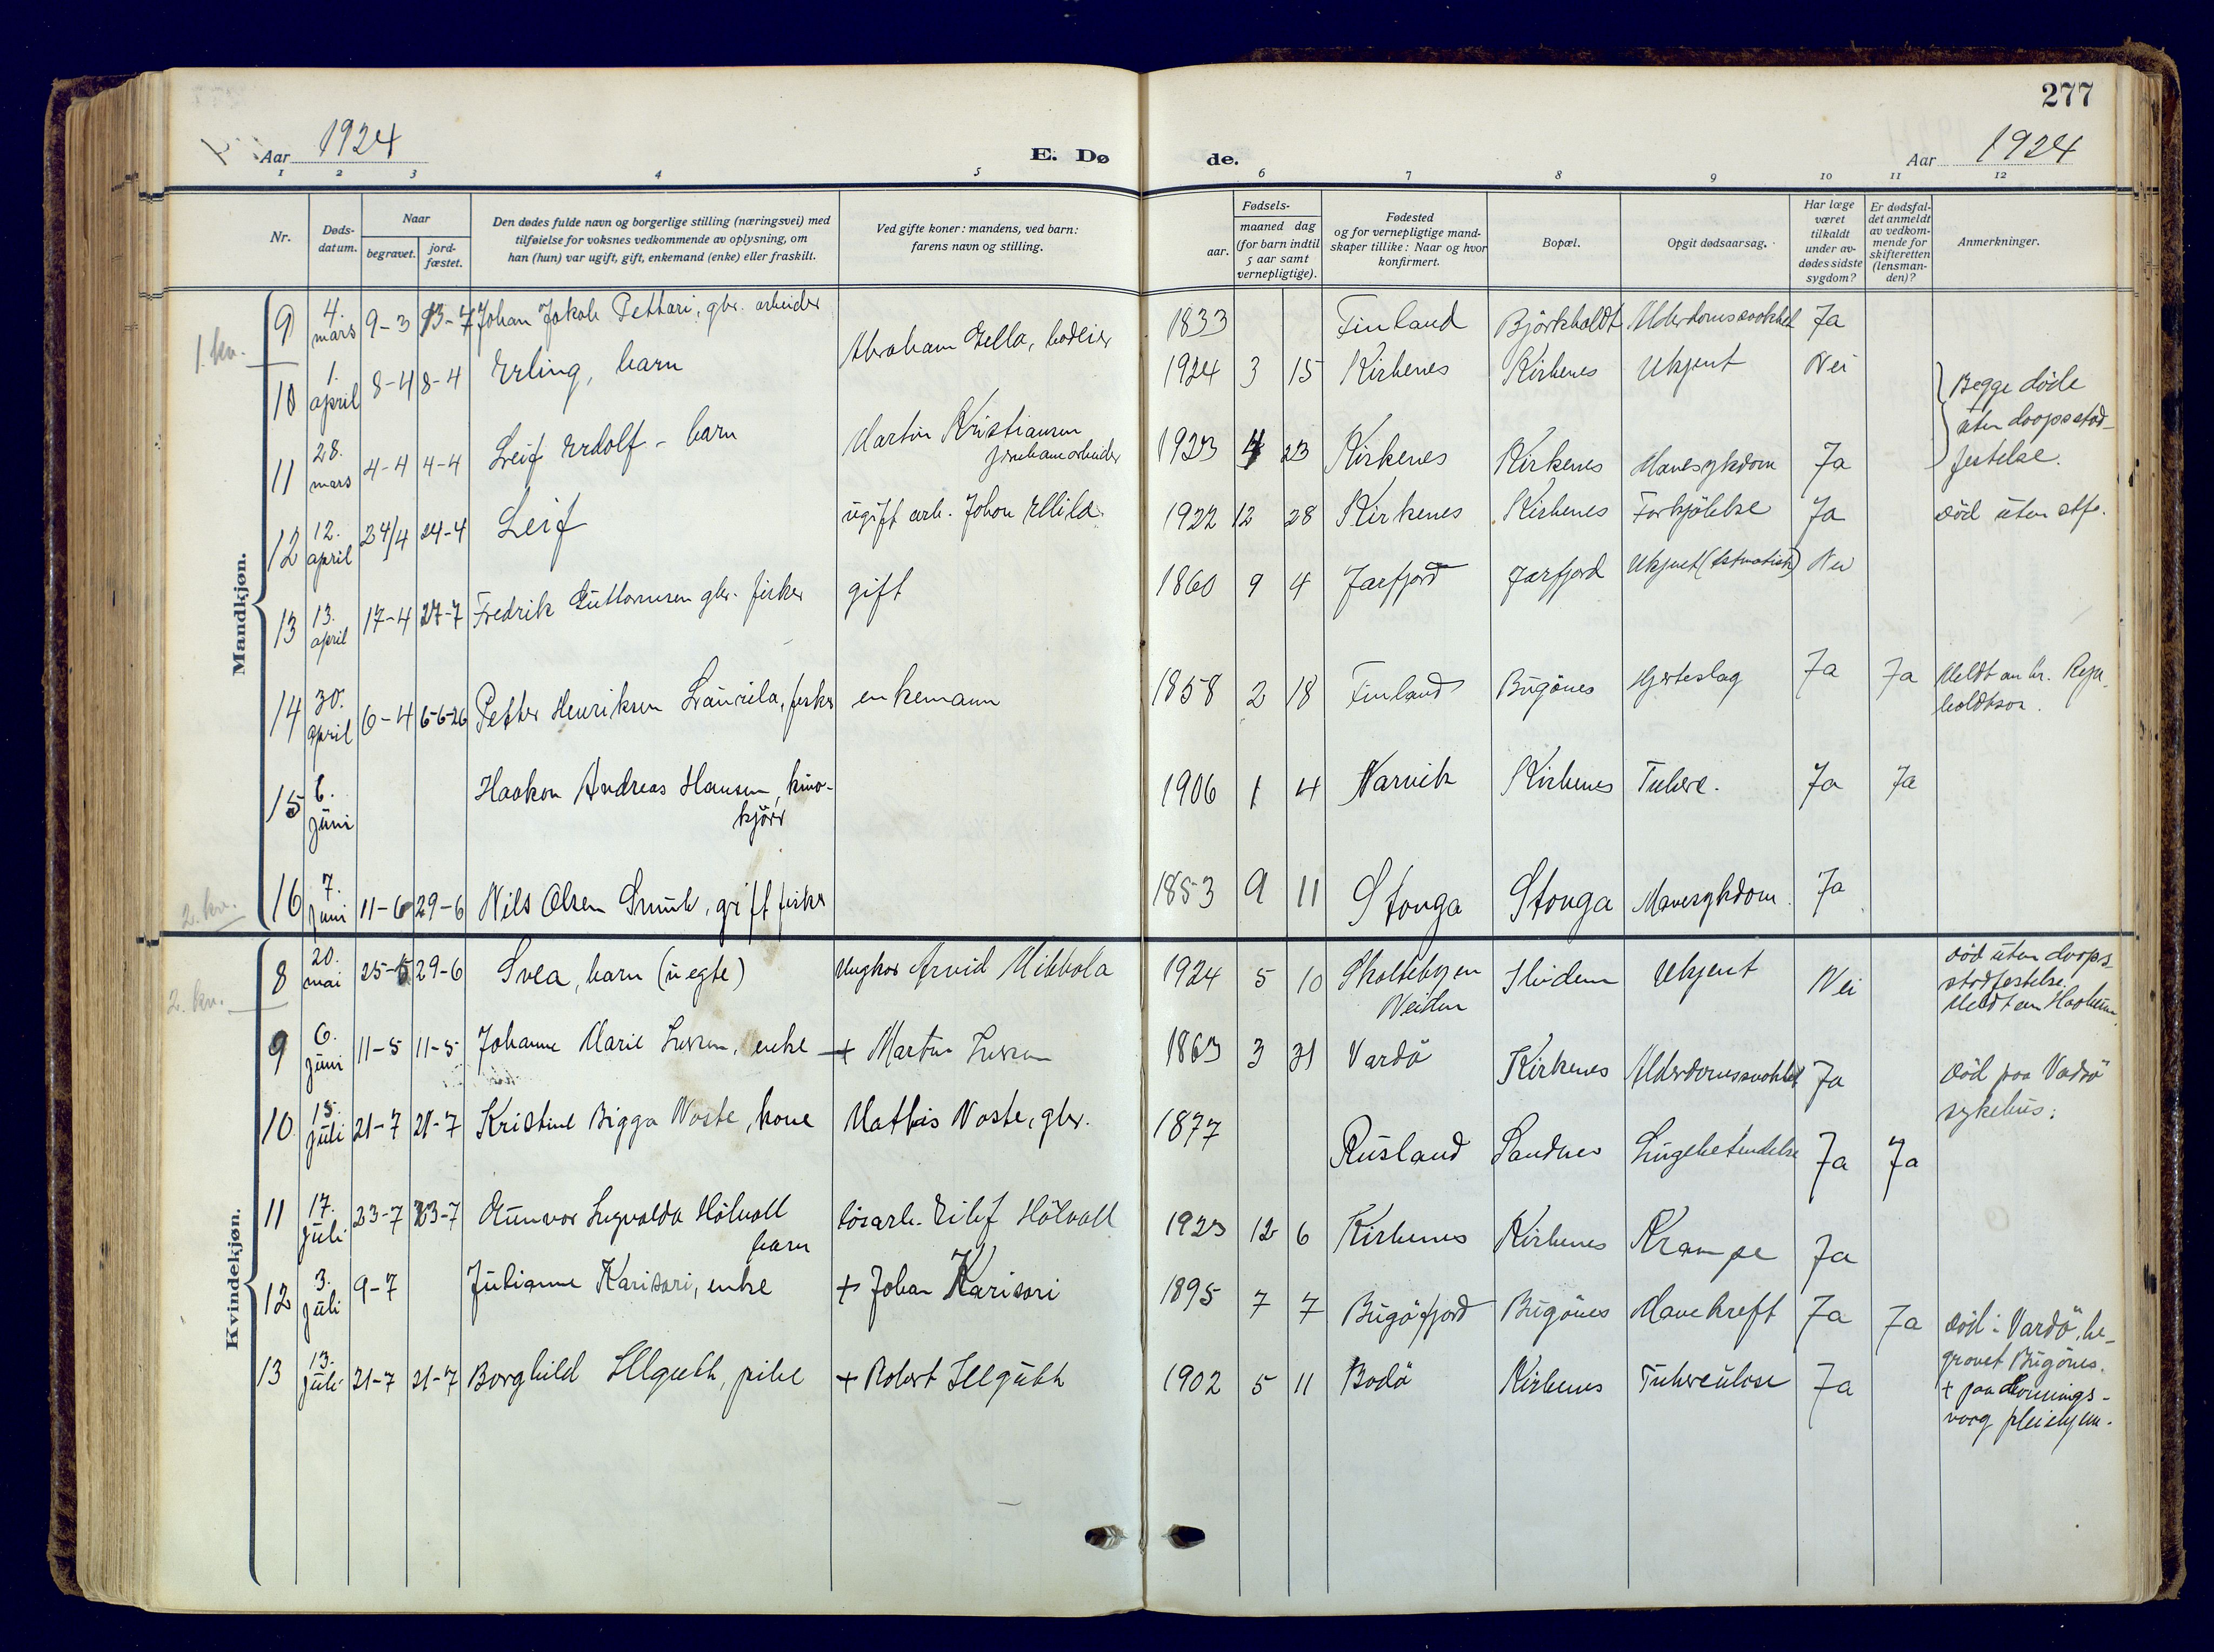 277
Aar 1924
E. Dø
de.
Aar 1924
1 2 3 4 5 6 7 8 9 10 11 12
Nr.
Døds-
datum.
Naar
begravet.
jord-
fæstet.
Den dødes fulde navn og borgerlige stilling (næringsvei) med
tilføielse for voksnes vedkommende av oplysning, om
han (hun) var ugift, gift, enkemand (enke) eller fraskilt.
Ved gifte koner: mandens, ved barn:
farens navn og stilling.
Fødsels-
aar.
maaned dag
(for barn indtil
5 aar samt
vernepligtige).
Fødested
og for vernepligtige mand-
skaper tillike: Naar og hvor
konfirmert.
Bopæl.
Opgit dødsaarsag.
Har læge
været
tilkaldt
under av-
dødes sidste
sygdom?
Er dødsfal-
det anmeldt
av vedkom-
mende for
skifteretten
(lensman-
den)?
Anmerkninger.
Mandkjøn.
1. kv.
9 4. mars 9-3 13-7 Johan Jakob Pettari, gbr. arbeider 1833 Finland Björkholdt Alderdomssvakhet Ja
10 1. april 8-4 8-4 Erling, barn Abraham Gella, 1924 3 15 Kirkenes Kirkenes Ukjent Nei
Begge döde
uten daapsstad-
festelse.
11 28. mars 4-4 4-4 Leif Erdolf - barn Martin Kristiansen
1923 4 23 Kirkenes Kirkenes Mavesykdom Ja
12 12. april 24/4 24-4 Leif ugift arb. Johan 1922 12 28 Kirkenes Kirkenes Forkjölelse Ja död uten stfe.
13 13. april 17-4 27-7 Fredrik Guttormsen gbr. fisker gift 1860 9 4 Jarfjord Jarfjord Ukjent Nei
14 30. april 6-4 6-6-26 Petter Henriksen Laurila, fisker enkemann 1858 2 18 Finland Bugönes Hjerteslag Ja Ja Meldt av hr.
holdtsen.
15 6. juni Haakon Andreas Hansen, kino-
kjörer
1906 1 4 Narvik Kirkenes Tuberk. Ja Ja
2. kv.
16 7. juni 11-6 29-6 Nils Olsen gift fisker 1853 9 11 Stonga Stonga Mavesykdom. Ja
Kvindekjøn.
2. kv.
8 20. mai 25-5 29-6 Svea, barn (uegte) Ungkar Arvid Mikkola 1924 5 10 Skoltebyen
Neiden
Ukjent Nei
död uten daaps-
stadfestelse.
Meldt av
9 6. juni 11-5 11-5 Johanne Marie enke + Martin 1863 3 31 Vardö Kirkenes Alderdomssvakhet Ja
död paa Vadsö
sykehus.
10 15. juli 21-7 21-7 Kristine Bigga Noste, kone Mathis Noste, gbr. 1877 Rusland Sandnes Lungebetendelse Ja Ja
11 17. juli 23-7 23-7 Gunvor Ingvalda Hölvall
barn
lösarb. Eilif Hölvall 1923 12 6 Kirkenes Kirkenes Krampe Ja
12 3. juli 9-7 Julianne Karisari, enke + Johan Karisari 1895 7 7 Bugöfjord Bugönes Mavekreft Ja Ja död i Vardö, be-
gravet Bugönes.
13 13. juli 21-7 21-7 Borghild Illguth, pike + Robert Illguth 1902 5 11 Bodö Kirkenes Tuberculose Ja
+ paa Honnings-
vaag pleiehjem.